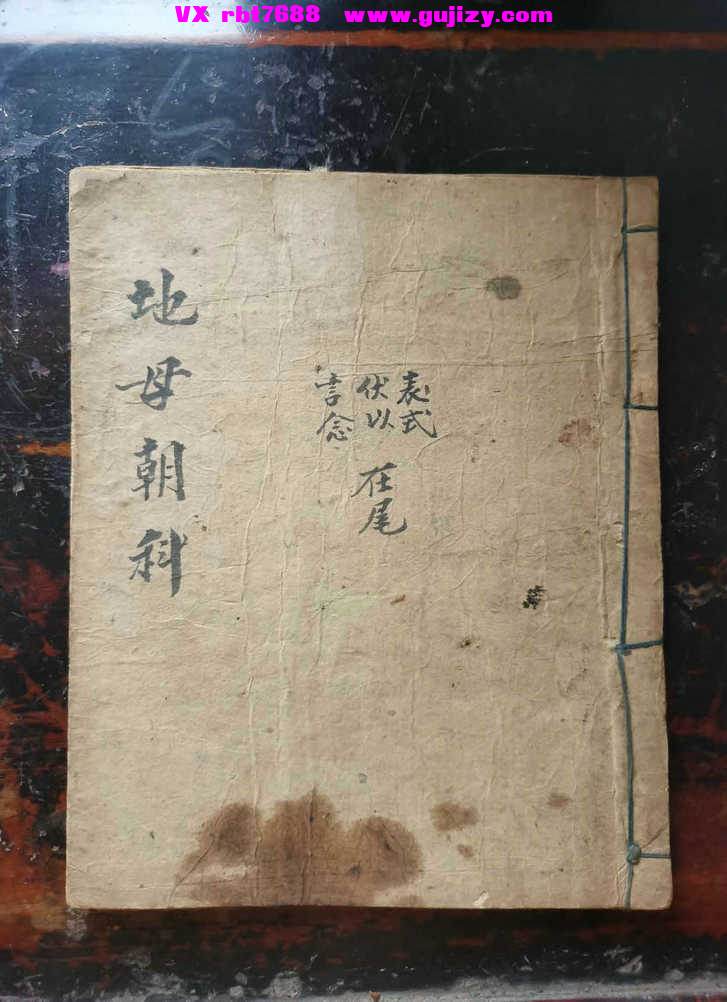 VX rbt7688 www.gujizy.com
表式
伏以
言念
在尾
地母朝科